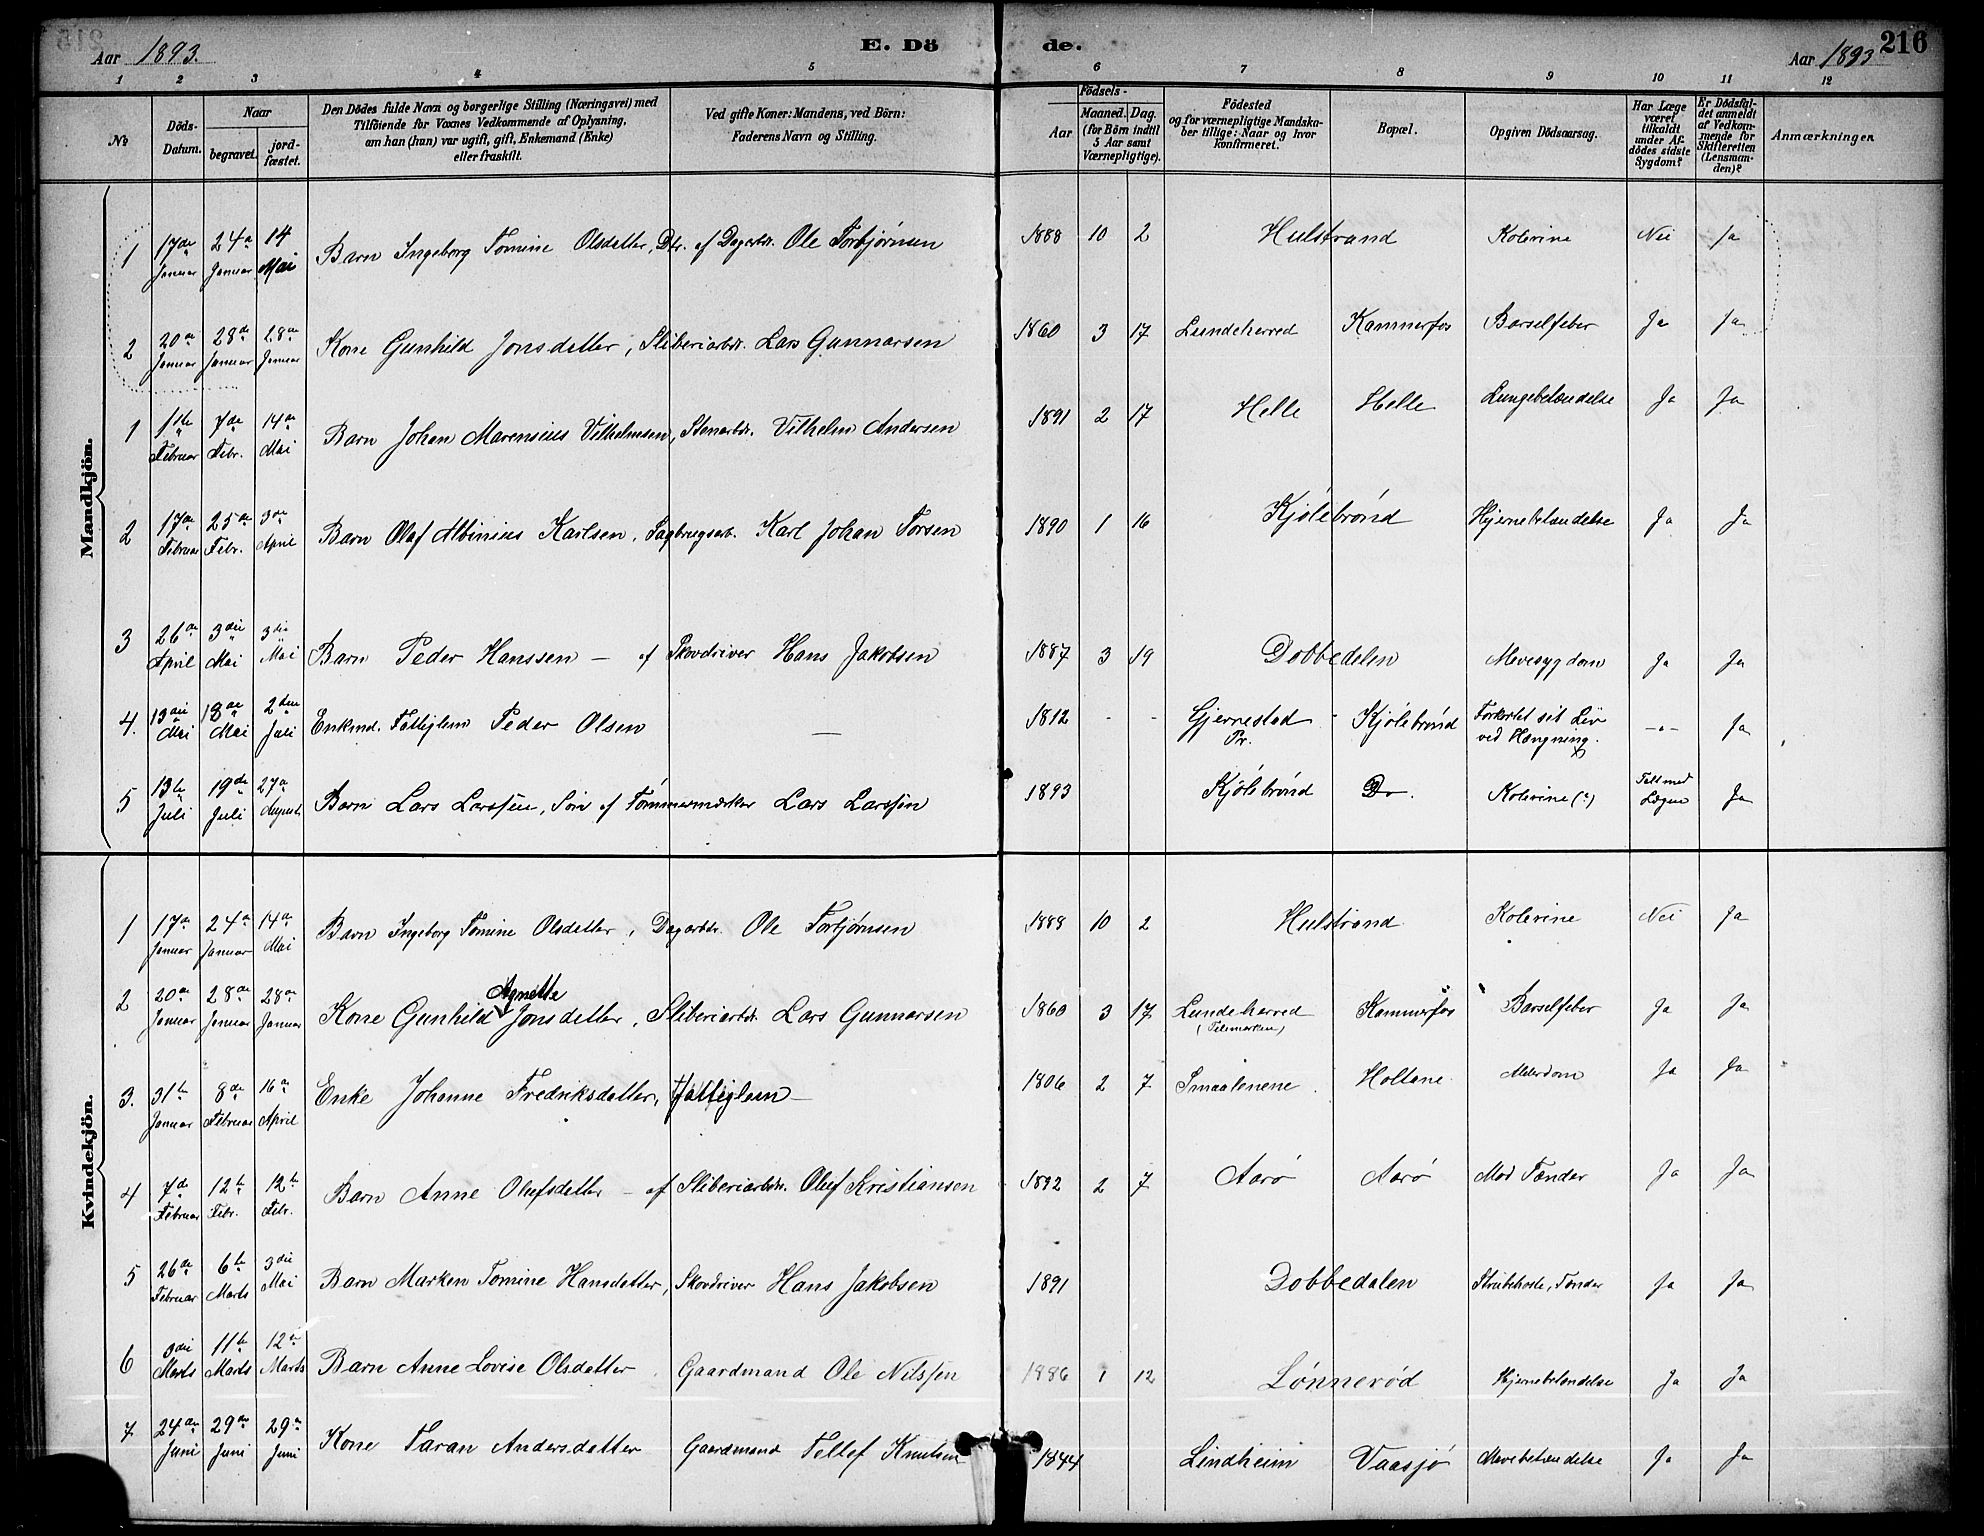 Aar 1893. E. Dö de. Aar 1893 216
1 2 3 4 5 6 7 8 9 10 11 12
No
Döds-Datum.
Naar
begravet.
jord-fæstet.
Den Dödes fulde Navn og borgerlige Stilling (Næringsvei) med
Tilföiende for Voxnes Vedkommende af Oplysning,
om han (hun) var ugift, gift, Enkemand (Enke)
eller fraskilt.
Ved gifte Koner: Mandens, ved Börn:
Faderens Navn og Stilling.
Födsels-
Aar
Maaned. Dag.
(for Börn indtil
5 Aar samt
Værnepligtige).
Födested
og for værnepligtige Mandska-
ber tillige: Naar og hvor
konfirmeret.
Bopæl.
Opgiven Dödsaarsag.
Har Læge
været
tilkaldt
under Af-
dödes sidste
Sygdom?
Er Dödsfal-
det anmeldt
af Vedkom-
mende for
Skifteretten
(Lensman-
den)?
Anmærkninger
Mandkjön.
1 17de Januar 24de Januar 14 Mai Barn Ingeborg Tomine Olsdatter, Dtr. af Dagarbdr. Ole Torbjørnsen 1888 10 2 Hulstrand Kolerine Nei Ja
2 20de Januar 28de Januar 28de Januar Kone Gunhild Jonsdatter, Sliberiarbdr. Lars Gunnarsen 1860 3 17 Lundeherred Kammerfos Barselfeber Ja Ja
1 1ste Februar 7de Febr. 14de Mai Barn Johan Marensius Vilhelmsen, Stenarbdr. Vilhelm Andersen 1891 2 17 Helle Helle Lungebetændelse Ja Ja
2 17de Februar 25de Febr. 3die April Barn Olaf Albinius Karlsen, Sagbrugsarb. Karl Johan Torsen 1890 1 16 Kjølebrønd Hjernebetændelse Ja Ja
3 26de April 3die Mai 3die Mai Barn Peder Hanssen — af Skovdriver Hans Jakobsen 1887 3 19 Dobbedalen Mavesygdom Ja Ja
4. 13de Mai 18de Mai 2den Juli Enkmd. Fattiglem Peder Olsen — 1812 - - Gjerrestad Pr. Kjølebrønd Forkortet sit Liv ved Hængning. -"- Ja
5 13de Juli 19de Juli 27de August Barn Lars Larssen, Søn af Tømmermærker Lars Larssen 1893 Kjølebrønd Do. Kolerine (?) Talt med Lægen Ja
Kvindekjön.
1 17de Januar 24de Januar 14de Mai Barn Ingeborg Tomine Olsdatter, Dagarbdr. Ole Torbjørnsen 1888 10 2 Hulstrand Kolerine Nei Ja
Agnette
2 20de Januar 28de Januar 28de Januar Kone Gunhild Jonsdatter, Sliberiarbdr. Lars Gunnarsen 1860 3 17 Lundeherred (Telemarken) Kammerfos Barselfeber Ja Ja
3. 31te Januar 8de Februar 16de April Enke Johanne Fredriksdatter, Fattiglem — 1806 2 7 Smaalenene Holtane Alderdom Ja Ja
4 7de Februar 12te Febr. 12te Febr. Barn Anne Olufsdatter — af Sliberiarbdr. Oluf Kristiansen 1892 2 7 Aarø Aarø Mod Tænder Ja Ja
5 26de Februar 6te Marts 3die Mai Barn Marken Tomine Hansdatter, Skovdriver Hans Jakobsen 1891 Dobbedalen Strubehoste, Tænder Ja Ja
6 3die Marts 11te Marts 12te Marts Barn Anne Lovise Olsdatter Gaardmand Ole Nilssen 1886 1 12 Lønnerød Hjernebetændelse Ja Ja
7 24de Juni 29de Juni 29de Juni Kone Taran Andersdatter Gaardmand Tellef Knutsen 1844 Lindheim Vaasjø Mavebetændelse Ja Ja